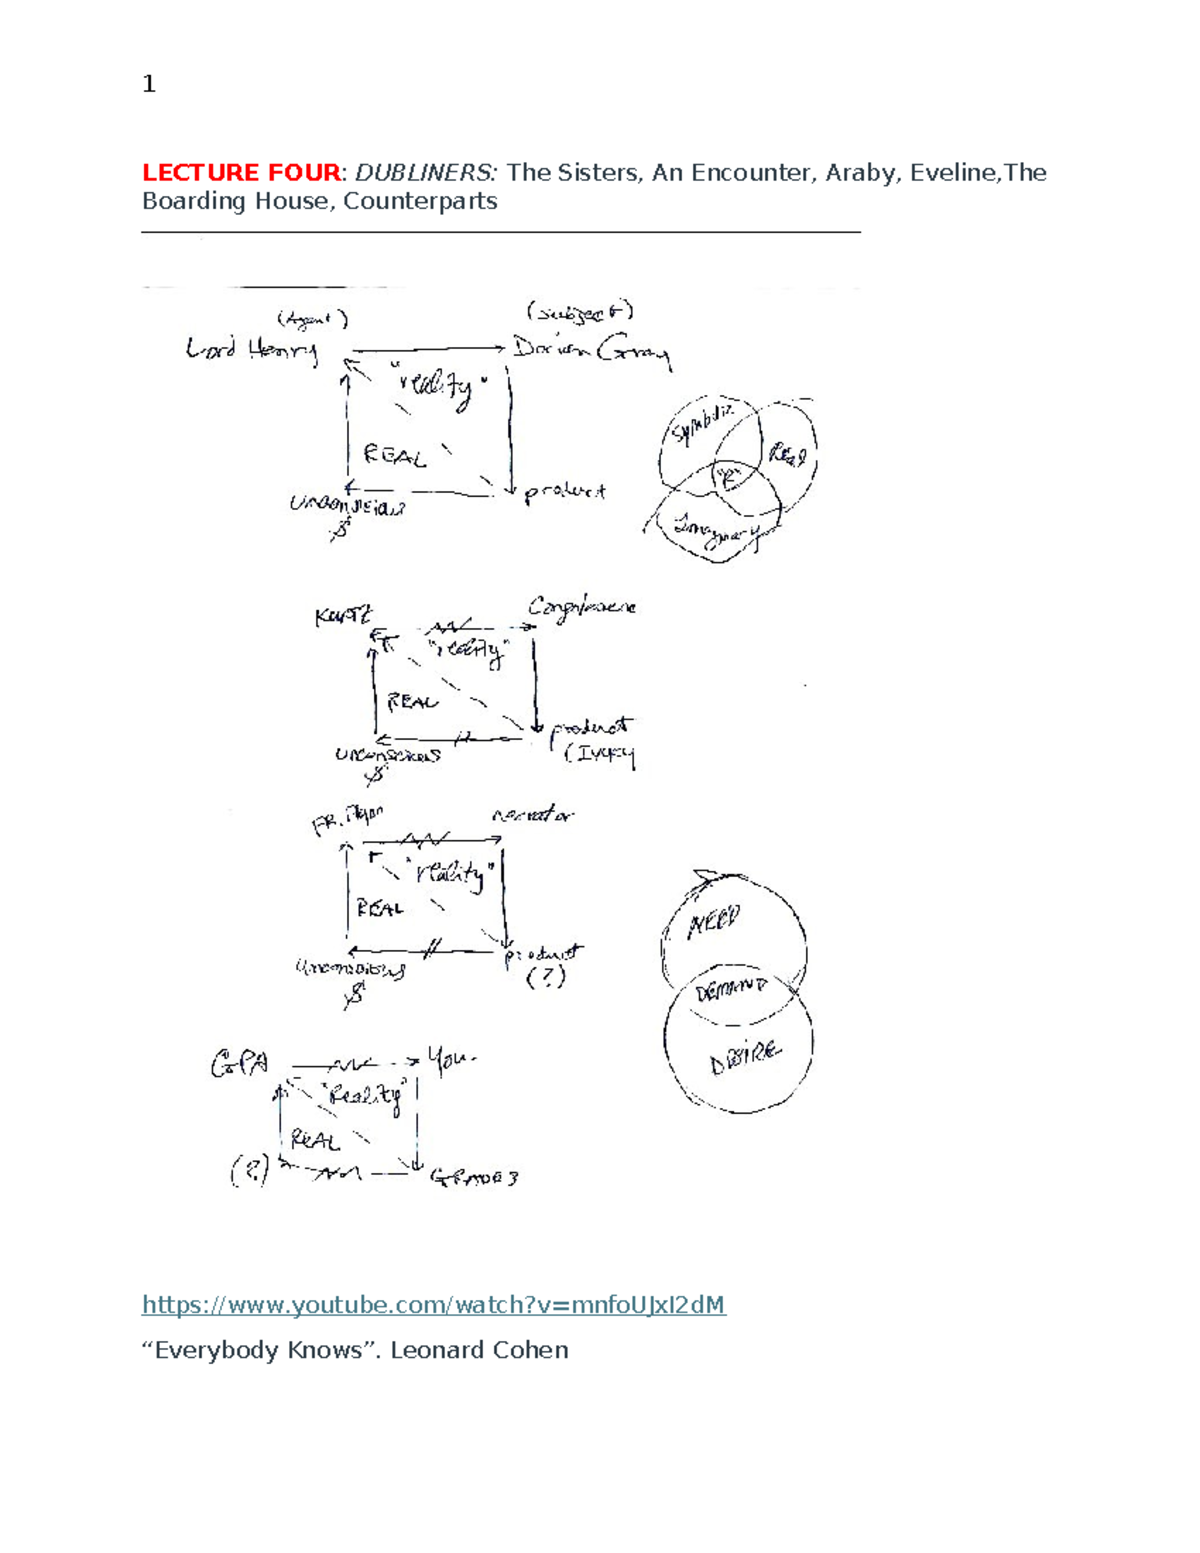 1
LECTURE FOUR: DUBLINERS: The Sisters, An Encounter, Araby, Eveline,The
Boarding House, Counterparts
(Agent)
(subject)
Lord Henry
Dorian Gray
"reality"
REAL
unconscious
$
product
Symbolic
Real
"R"
Imaginary
Kurtz
"reality"
REAL
unconscious
$
product
(Ivory
FR. Flynn
narrator
"reality"
REAL
Unconscious
$
product
(?)
NEED
DEMAND
DESIRE
GPA
You.
"Reality"
REAL
(?)
GRADES
https://www.youtube.com/watch?v=mnfoUJxI2dM
“Everybody Knows”. Leonard Cohen